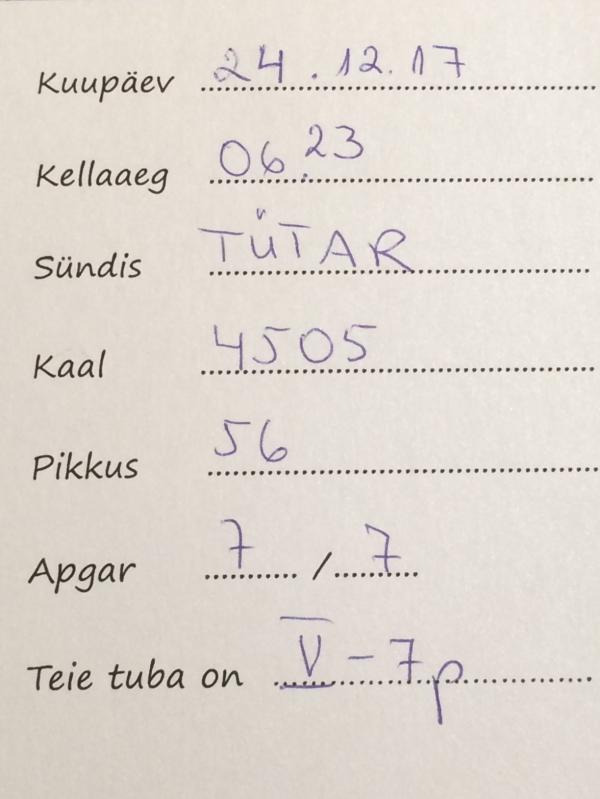 Kuupäev 24.12.17
Kellaaeg 06.23
Sündis TÜTAR
Kaal 4505
Pikkus 56
Apgar 7 / 7
Teie tuba on V - 7p